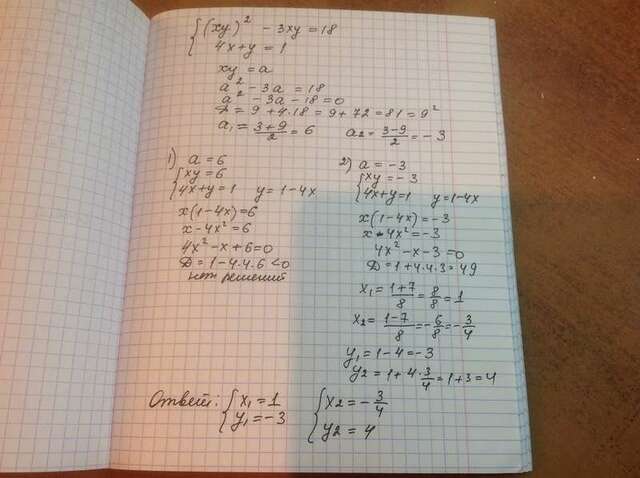 {(xy)² - 3xy = 18
4x+y = 1
xy = a
a² - 3a = 18
a² - 3a - 18 = 0
D = 9 + 4·18 = 9 + 72 = 81 = 9²
a₁ = (3+9)/2 = 6    a₂ = (3-9)/2 = -3
1) a = 6
{xy = 6
4x+y = 1    y = 1-4x
x(1-4x) = 6
x - 4x² = 6
4x² - x + 6 = 0
D = 1 - 4·4·6 < 0
нет решений
2) a = -3
{xy = -3
4x+y = 1    y = 1-4x
x(1-4x) = -3
x - 4x² = -3
4x² - x - 3 = 0
D = 1 + 4·4·3 = 49
x₁ = (1+7)/8 = 8/8 = 1
x₂ = (1-7)/8 = -6/8 = -3/4
y₁ = 1 - 4 = -3
y₂ = 1 + 4·3/4 = 1 + 3 = 4
Ответ: {x₁ = 1    {x₂ = -3/4
y₁ = -3    y₂ = 4